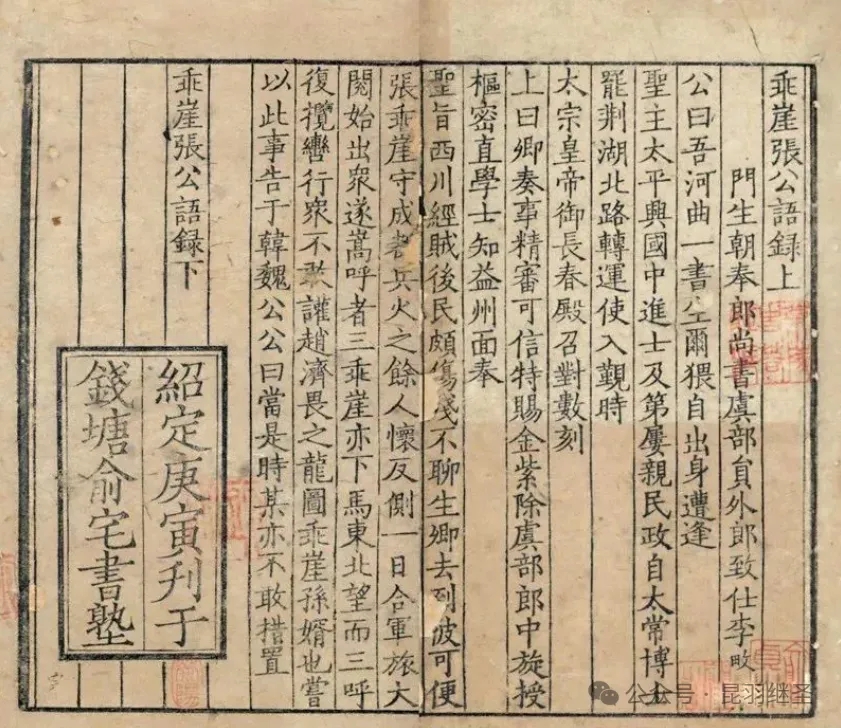 乖崖張公語録上
門生朝奉郎尚書虞部貟外郎致仕李畋
公曰吾河曲一書生爾猥自出身遭逢
聖主太平興國中進士及第屢親民政自太常博士
罷荆湖北路轉運使入覲時
太宗皇帝御長春殿召對數刻
上曰卿奏事精審可信特賜金紫除虞部郎中旋授
樞密直學士知益州面奉
聖旨西川經賊後民頗傷殘不聊生卿去到彼可便
張乖崖守成都兵火之餘人懷反側一日合軍旅大
閱始出衆遂嵩呼者三乖崖亦下馬東北望而三呼
復攬轡行衆不敢讙趙濟畏之龍圖乖崖孫婿也嘗
以此事告于韓魏公公曰當是時某亦不敢措置
乖崖張公語録下
紹定庚寅刋于
錢塘俞宅書塾
公众号·昆羽继圣